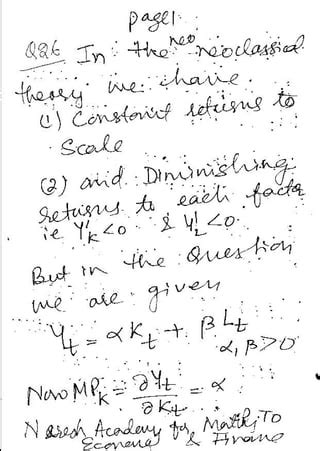 page1
Q26 In the neo neoclassical
theory we have
(1) Constant returns to
Scale
(2) and Diminishing
returns to each factor
ie Y'K <0 & Y'L <0
But in the question
we are given
Yt = αKt + βLt
α, β>0
Now MPK = ∂Yt/∂Kt = α
Naresh Academy for Maths TO
Economic & Finance